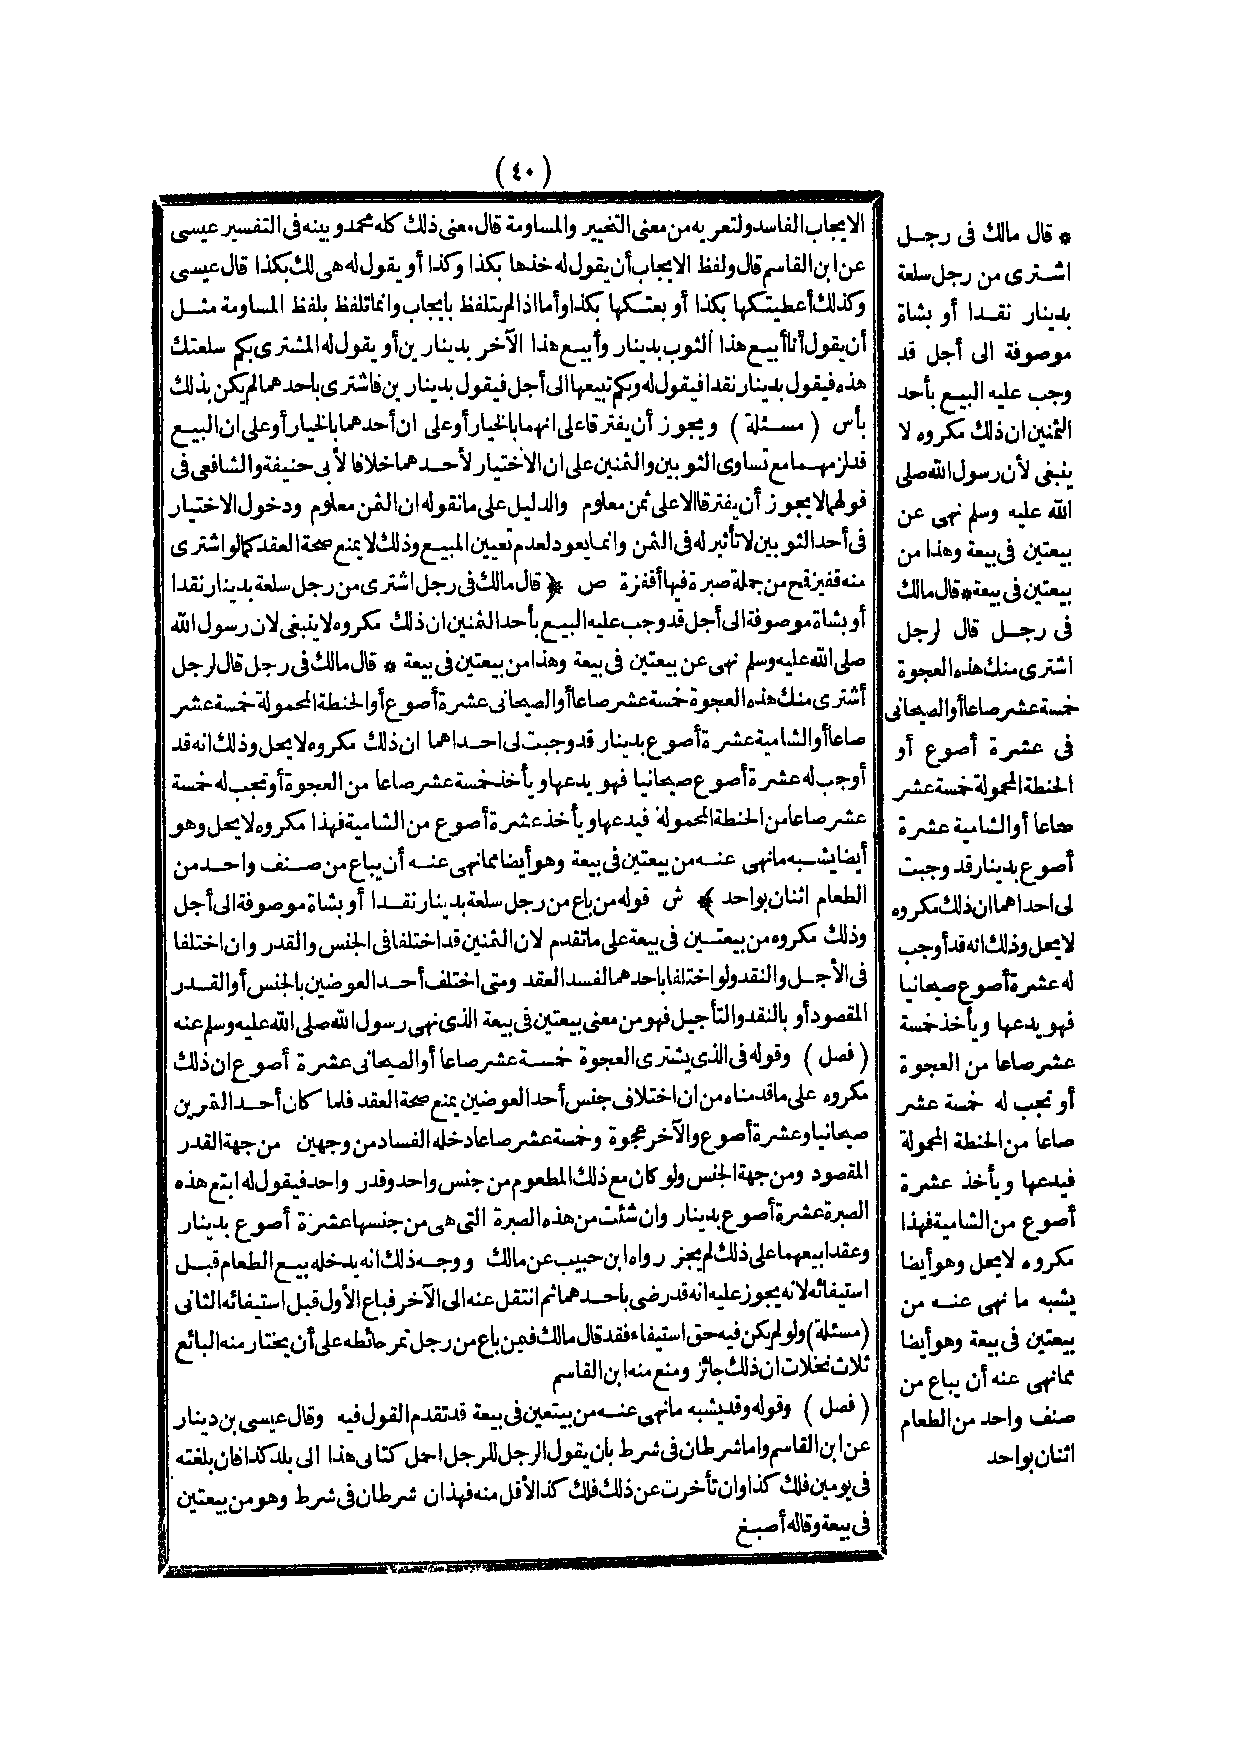 (٤٠)
الايجاب الفاسد ولتعريه من معنى التخيير والمساومة قال معنى ذلك كله محمد وبينه فى التفسير عيسى
عن ابن القاسم قال ولفظ الايجاب أن يقول له خذها بكذا وكذا أو يقول له هى لك بكذا قال عيسى
وكذلك أعطيتكها بكذا أو بعتكها بكذا وأما اذا لم يتلفظ بايجاب وانما تلفظ بلفظ المساومة مثل
أن يقول أنا أبيع هذا الثوب بدينار وأبيع هذا الآخر بدينارين أو يقول له المشترى بكم سلعتك
هذه فيقول بدينار نقدا فيقول له وبكم تبيعها الى أجل فيقول بدينارين فاشترى باحدهما لم يكن بذلك
بأس (مسئلة) ويجوز أن يفترقا على انهما بالخيار أو على ان أحدهما بالخيار أو على ان البيع
قد لزمهما مع تساوى الثوبين والثمنين على ان الاختيار لأحدهما خلافا لأبى حنيفة والشافعى فى
قولهما لا يجوز أن يفترقا الا على ثمن معلوم والدليل على ما نقوله ان الثمن معلوم ودخول الاختيار
فى أحد الثوبين لا تأثير له فى الثمن وانما يعود لعدم تعيين المبيع وذلك لا يمنع صحة العقد كما لو اشترى
منه قفيز قمح من جملة صبرة فيها أقفزة ص ﴿ قال مالك فى رجل اشترى من رجل سلعة بدينار نقدا
أو بشاة موصوفة الى أجل قد وجب عليه البيع بأحد الثمنين ان ذلك مكروه لا ينبغى لان رسول الله
صلى الله عليه وسلم نهى عن بيعتين فى بيعة وهذا من بيعتين فى بيعة * قال مالك فى رجل قال لرجل
أشترى منك هذه العجوة خمسة عشر صاعا أو الصيحانى عشرة أصوع أو الحنطة المحمولة خمسة عشر
صاعا أو الشامية عشرة أصوع بدينار قد وجبت لى احداهما ان ذلك مكروه لا يحل وذلك انه قد
أوجب له عشرة أصوع صيحانيا فهو يدعها ويأخذ خمسة عشر صاعا من العجوة أو تجب له خمسة
عشر صاعا من الحنطة المحمولة فيدعها ويأخذ عشرة أصوع من الشامية فهذا مكروه لا يحل وهو
أيضا يشبه ما نهى عنه من بيعتين فى بيعة وهو أيضا مما نهى عنه أن يباع من صنف واحد من
الطعام اثنان بواحد ﴾ ش قوله من باع من رجل سلعة بدينار نقدا أو بشاة موصوفة الى أجل
وذلك مكروه من بيعتين فى بيعة على ما تقدم لان الثمنين قد اختلفا فى الجنس والقدر وان اختلفا
فى الأجل والنقد ولو اختلفا باحدهما لفسد العقد ومتى اختلف أحد العوضين بالجنس أو القدر
المقصود أو بالنقد والتأجيل فهو من معنى بيعتين فى بيعة الذى نهى رسول الله صلى الله عليه وسلم عنه
(فصل) وقوله فى الذى يشترى العجوة خمسة عشر صاعا أو الصيحانى عشرة أصوع ان ذلك
مكروه على ما قدمناه من ان اختلاف جنس أحد العوضين يمنع صحة العقد فلما كان أحد التمرين
صيحانيا وعشرة أصوع والآخر عجوة وخمسة عشر صاعا دخله الفساد من وجهين من جهة القدر
المقصود ومن جهة الجنس ولو كان مع ذلك المطعوم من جنس واحد وقدر واحد فيقول له ابتع هذه
الصبرة عشرة أصوع بدينار وان شئت من هذه الصبرة التى هى من جنسها عشرة أصوع بدينار
وعقدا بيعهما على ذلك لم يجز رواه ابن حبيب عن مالك ووجه ذلك انه يدخله بيع الطعام قبل
استيفائه لانه يجوز عليه انه قد رضى باحدهما ثم انتقل عنه الى الآخر فباع الأول قبل استيفائه الثانى
(مسئلة) ولو لم يكن فيه حق استيفاء فقد قال مالك فيمن باع من رجل تمر حائطه على أن يختار منه البائع
ثلاث نخلات ان ذلك جائز ومنع منه ابن القاسم
(فصل) وقوله وقد يشبه ما نهى عنه من بيعتين فى بيعة قد تقدم القول فيه وقال عيسى بن دينار
عن ابن القاسم واما شرطان فى شرط بان يقول الرجل للرجل احمل كتابى هذا الى بلد كذا فان بلغته
فى يومين فلك كذا وان تأخرت عن ذلك فلك كذا لأقل منه فهذان شرطان فى شرط وهو من بيعتين
فى بيعة وقاله أصبغ
* قال مالك فى رجل
اشترى من رجل سلعة
بدينار نقدا أو بشاة
موصوفة الى أجل قد
وجب عليه البيع بأحد
الثمنين ان ذلك مكروه لا
ينبغى لأن رسول الله صلى
الله عليه وسلم نهى عن
بيعتين فى بيعة وهذا من
بيعتين فى بيعة * قال مالك
فى رجل قال لرجل
اشترى منك هذه العجوة
خمسة عشر صاعا أو الصيحانى
فى عشرة أصوع أو
الحنطة المحمولة خمسة عشر
صاعا أو الشامية عشرة
أصوع بدينار قد وجبت
لى احداهما ان ذلك مكروه
لا يحل وذلك انه قد أوجب
له عشرة أصوع صيحانيا
فهو يدعها ويأخذ خمسة
عشر صاعا من العجوة
أو تجب له خمسة عشر
صاعا من الحنطة المحمولة
فيدعها ويأخذ عشرة
أصوع من الشامية فهذا
مكروه لا يحل وهو أيضا
يشبه ما نهى عنه من
بيعتين فى بيعة وهو أيضا
مما نهى عنه أن يباع من
صنف واحد من الطعام
اثنان بواحد